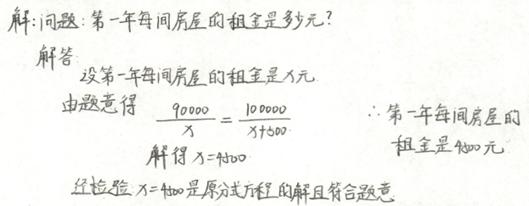 解:问题:第一年每间房屋的租金是多少元?
解答
设第一年每间房屋的租金是x元.
由题意得 90000/x = 100000/x+500
解得 x=4500
经检验 x=4500是原分式方程的解且符合题意
∴第一年每间房屋的
租金是4500元